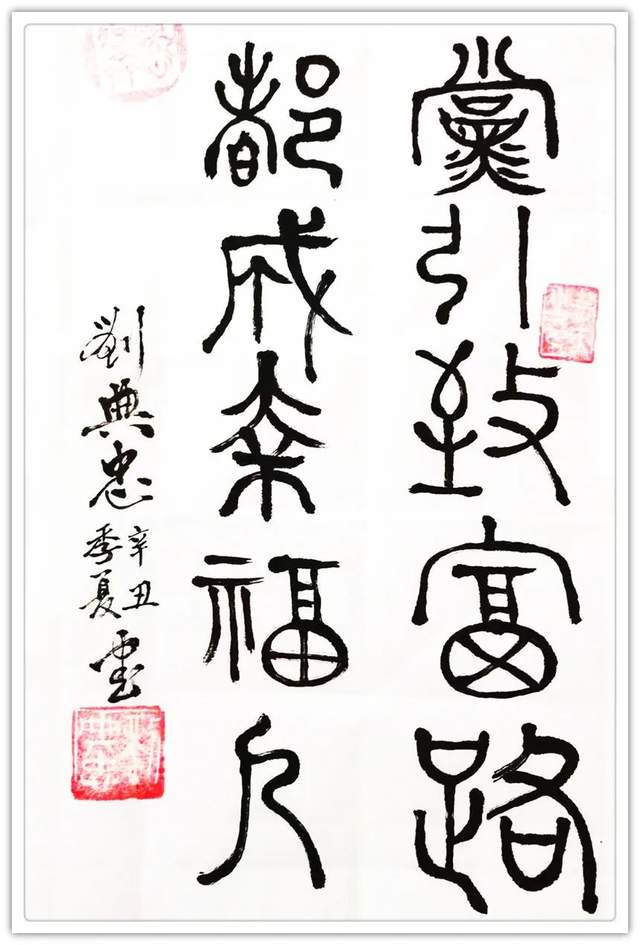 黨引致富路
都成幸福人
劉典忠
辛丑
季夏